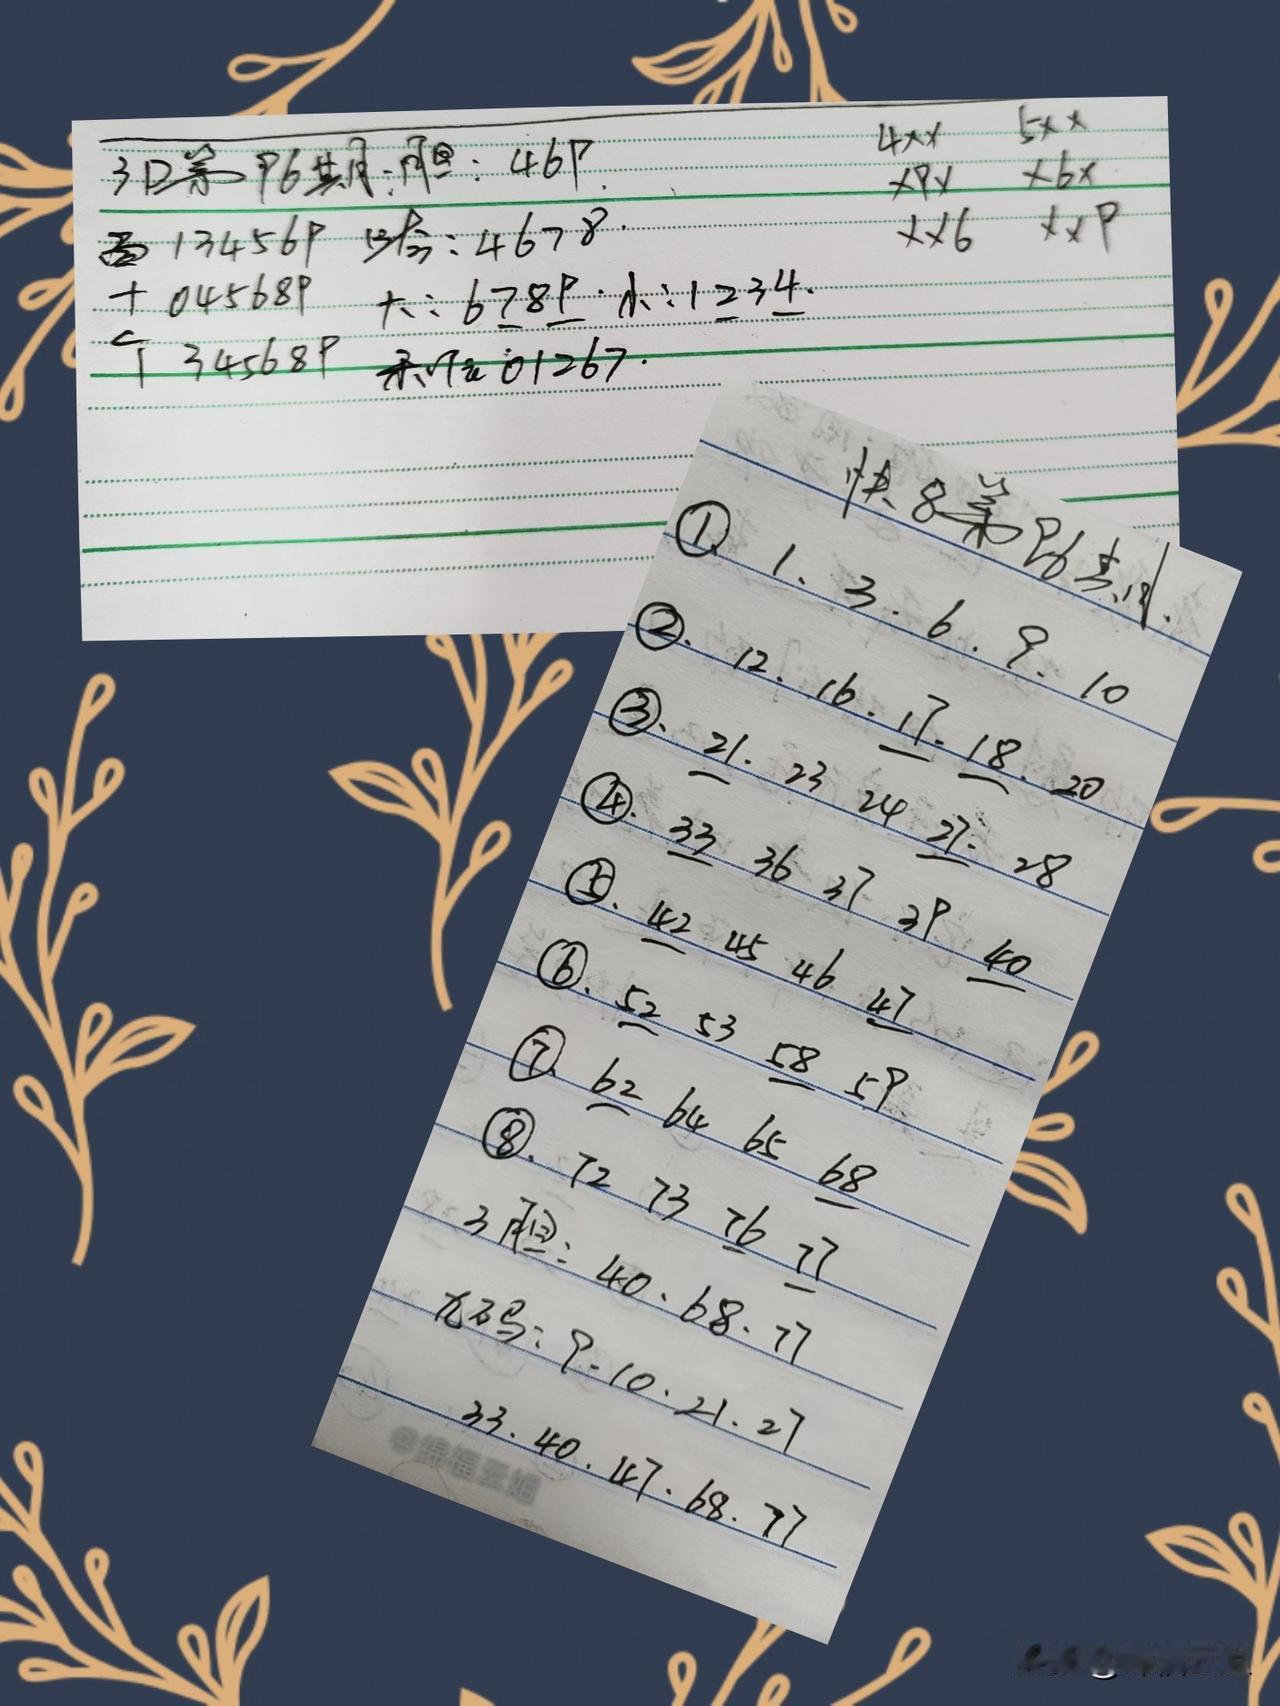 3D第96期:胆:469.
百 134569 跨:4678.
十 045689 大:6789.小:1234.
个 345689 杀胆:01267.
4xx 5xx
x9x x6x
xx6 xx9
快8第96期.
①. 1.3.6.9.10
②. 12.16.17.18.20
③. 21.23 24 27.28
④. 33 36 37 39 40
⑤. 42 45 46 47
⑥. 52 53 58 59
⑦. 62 64 65 68
⑧. 72 73 76 77
3胆:40.68.77
九码:9.10.21.27
33.40.47.68.77